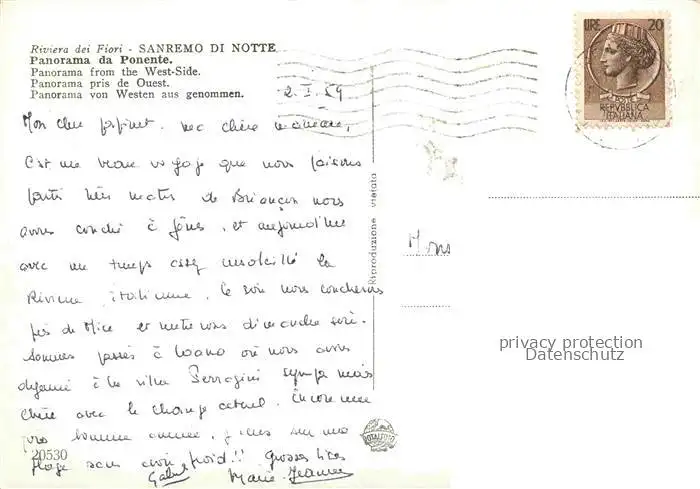 Riviera dei Fiori - SANREMO DI NOTTE
Panorama da Ponente.
Panorama from the West-Side.
Panorama pris de Ouest.
Panorama von Westen aus genommen.
LIRE 20
POSTE
REPVBBLICA
ITALIANA
2.I.59
Mon cher ma chère maman,
C'est un beau voyage que nous faisons
partis hier matin de Briançon nous
avons couché à Gênes, et aujourd'hui
avec un temps assez ensoleillé la
Riviera italienne. Le soir nous coucherons
près de Nice et rentrerons dimanche soir.
Sommes passés à Loano où nous avons
déjeuné à la villa sympa mais
chère avec le change actuel. Encore une
bonne année, sur une
plage sans avoir froid!! Grosses bises
Gaby Marie-Jeanne
20530
Riproduzione vietata
ROTALFOTO
Mons
privacy protection
Datenschutz